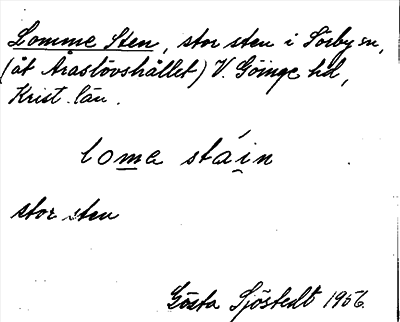 Lomme Sten, stor sten i Sörby sn,
(åt Araslövshållet) V. Göinge hd,
Krist. län.
lome stáin
stor sten
Gösta Sjöstedt 1956.